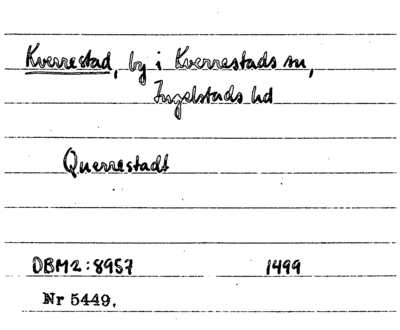 Kverrestad, by i Kverrestads sn,
Ingelstads hd
Querrestadt
DBM2:8957 1499
Nr 5449.